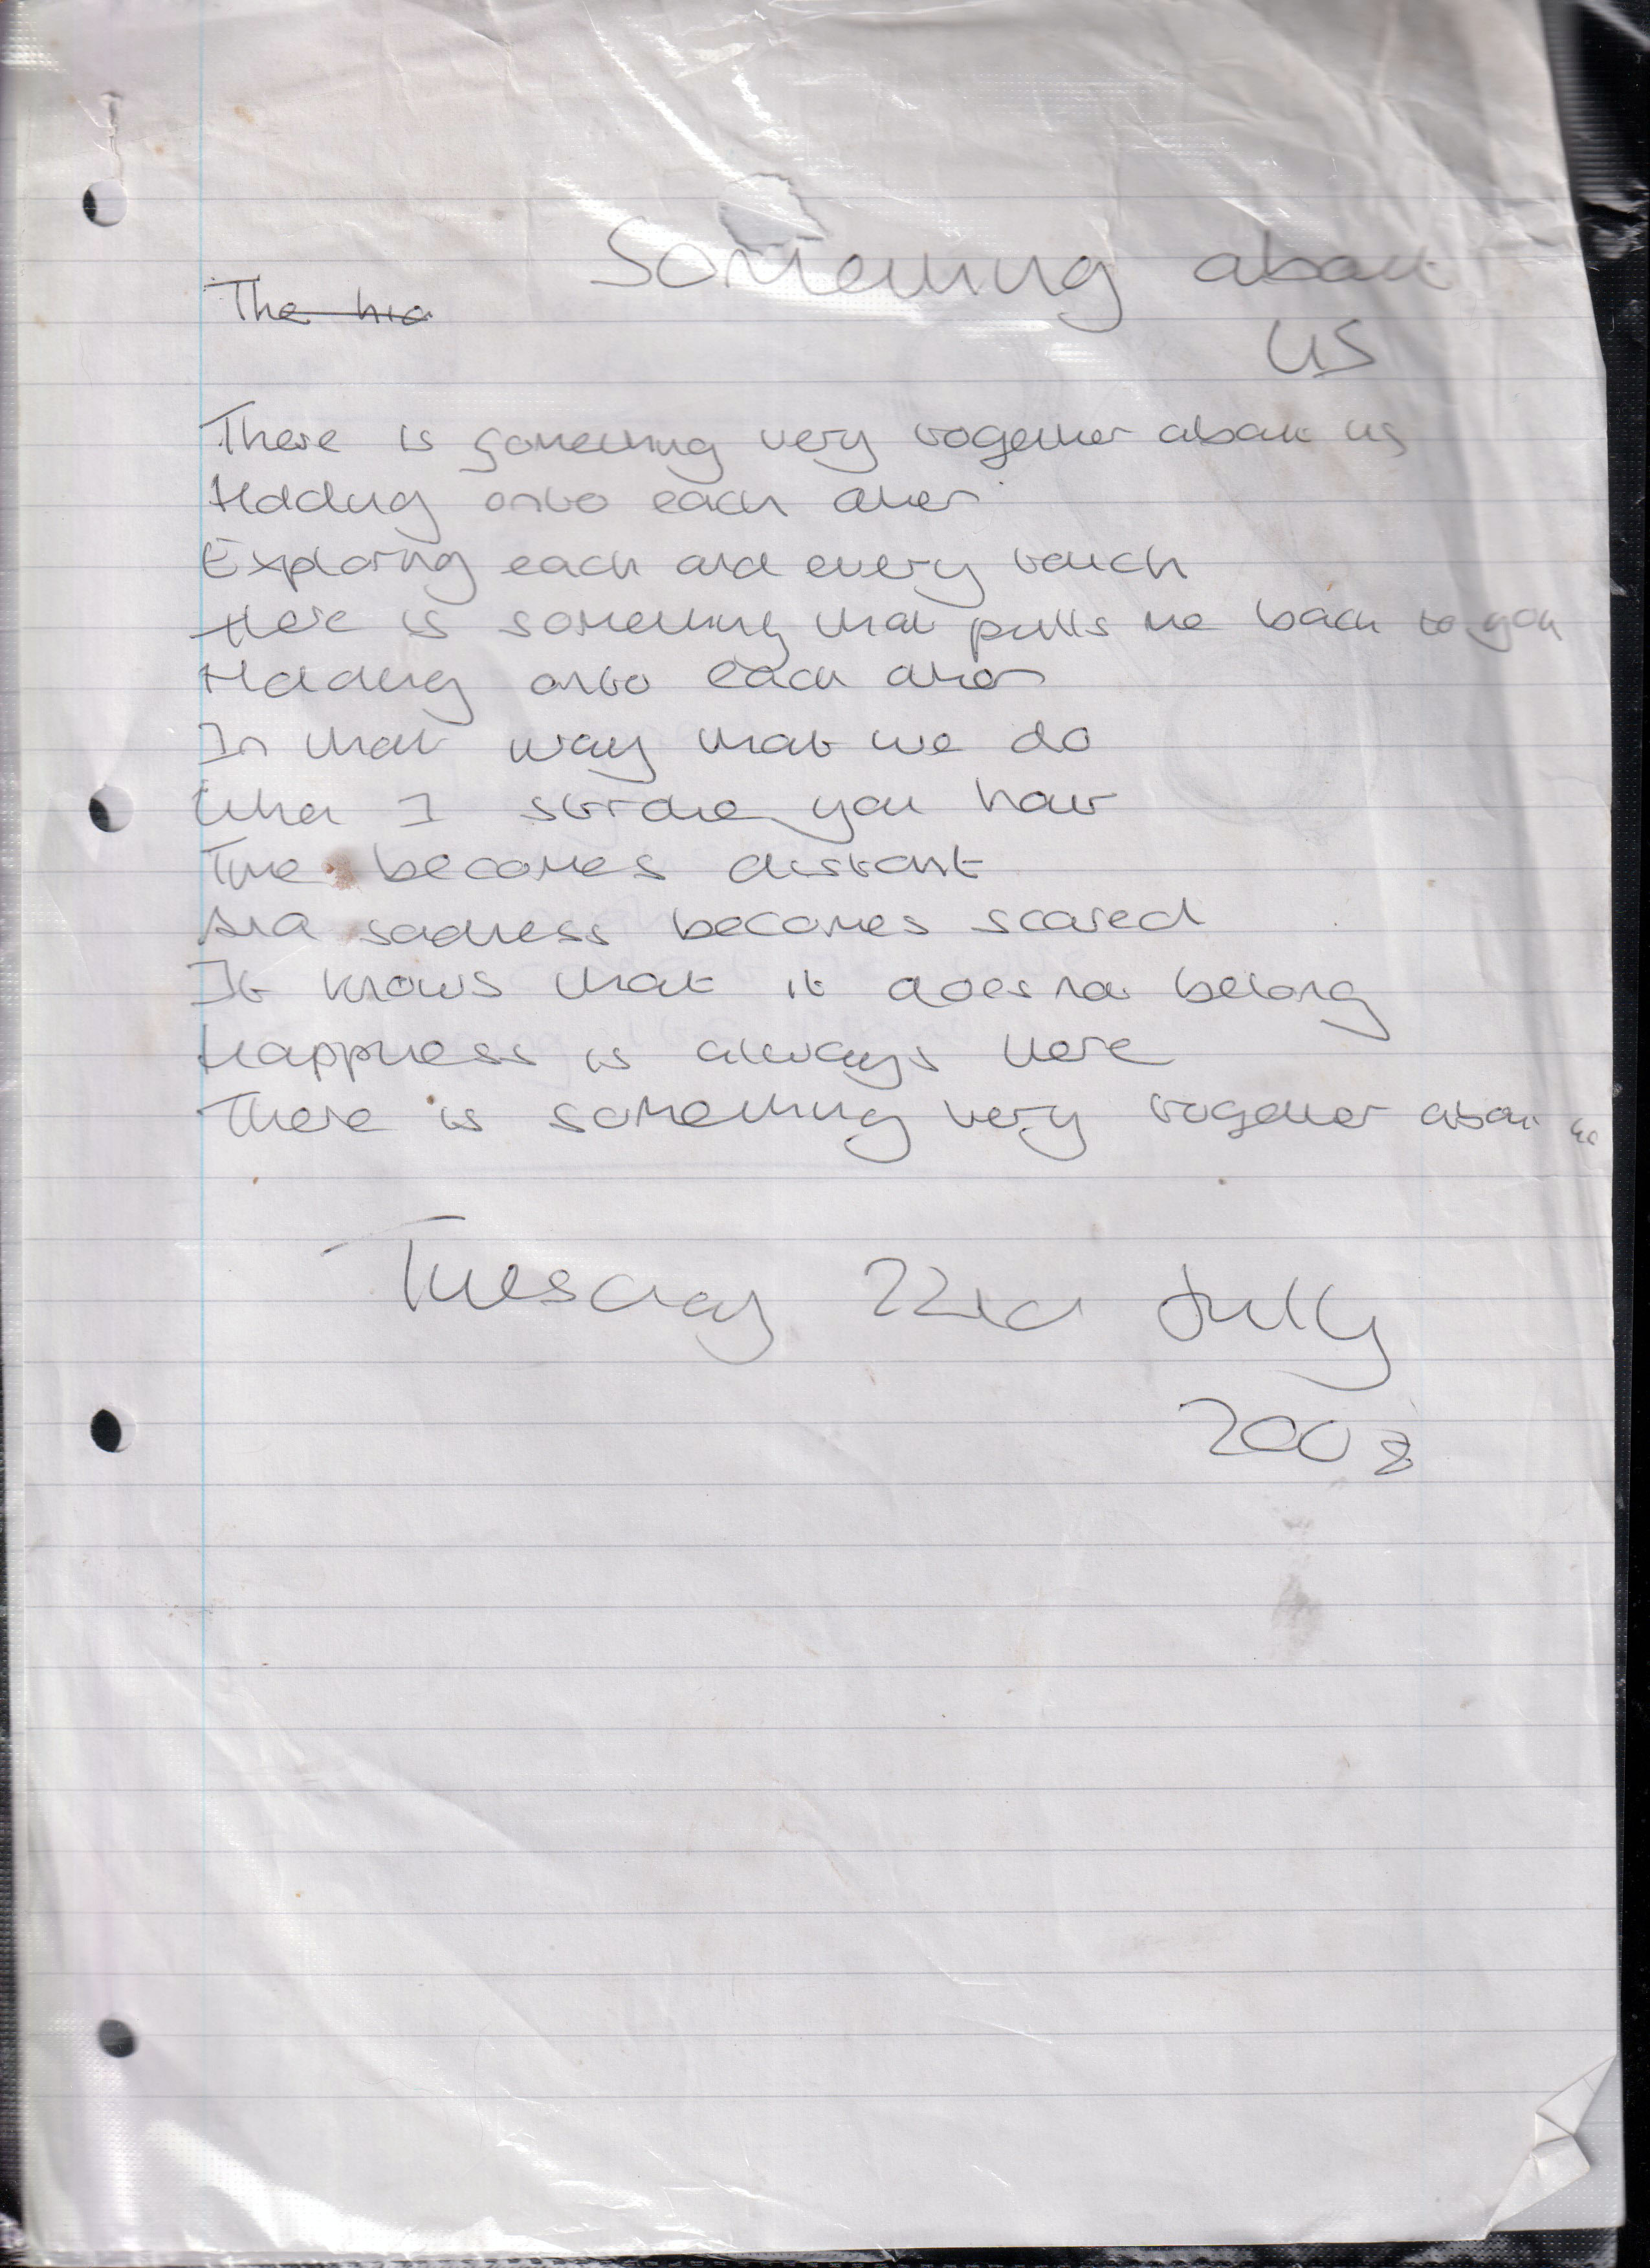 Something about
us
The
There is something very together about us
Holding onto each other
Exploring each and every touch
There is something that pulls me back to you
Holding onto each other
In that way that we do
When I stroke you hair
Time becomes distant
And sadness becomes scared
It knows that it does not belong
Happiness is always here
There is something very together about us
Tuesday 22nd July
2008